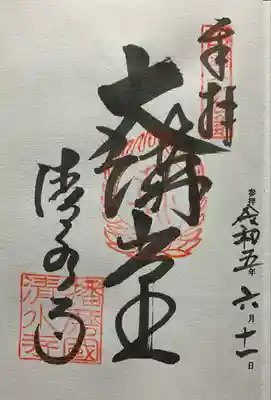 奉拝
参拝 令和五年六月十一日
大講堂
清水寺
播磨國
清水寺